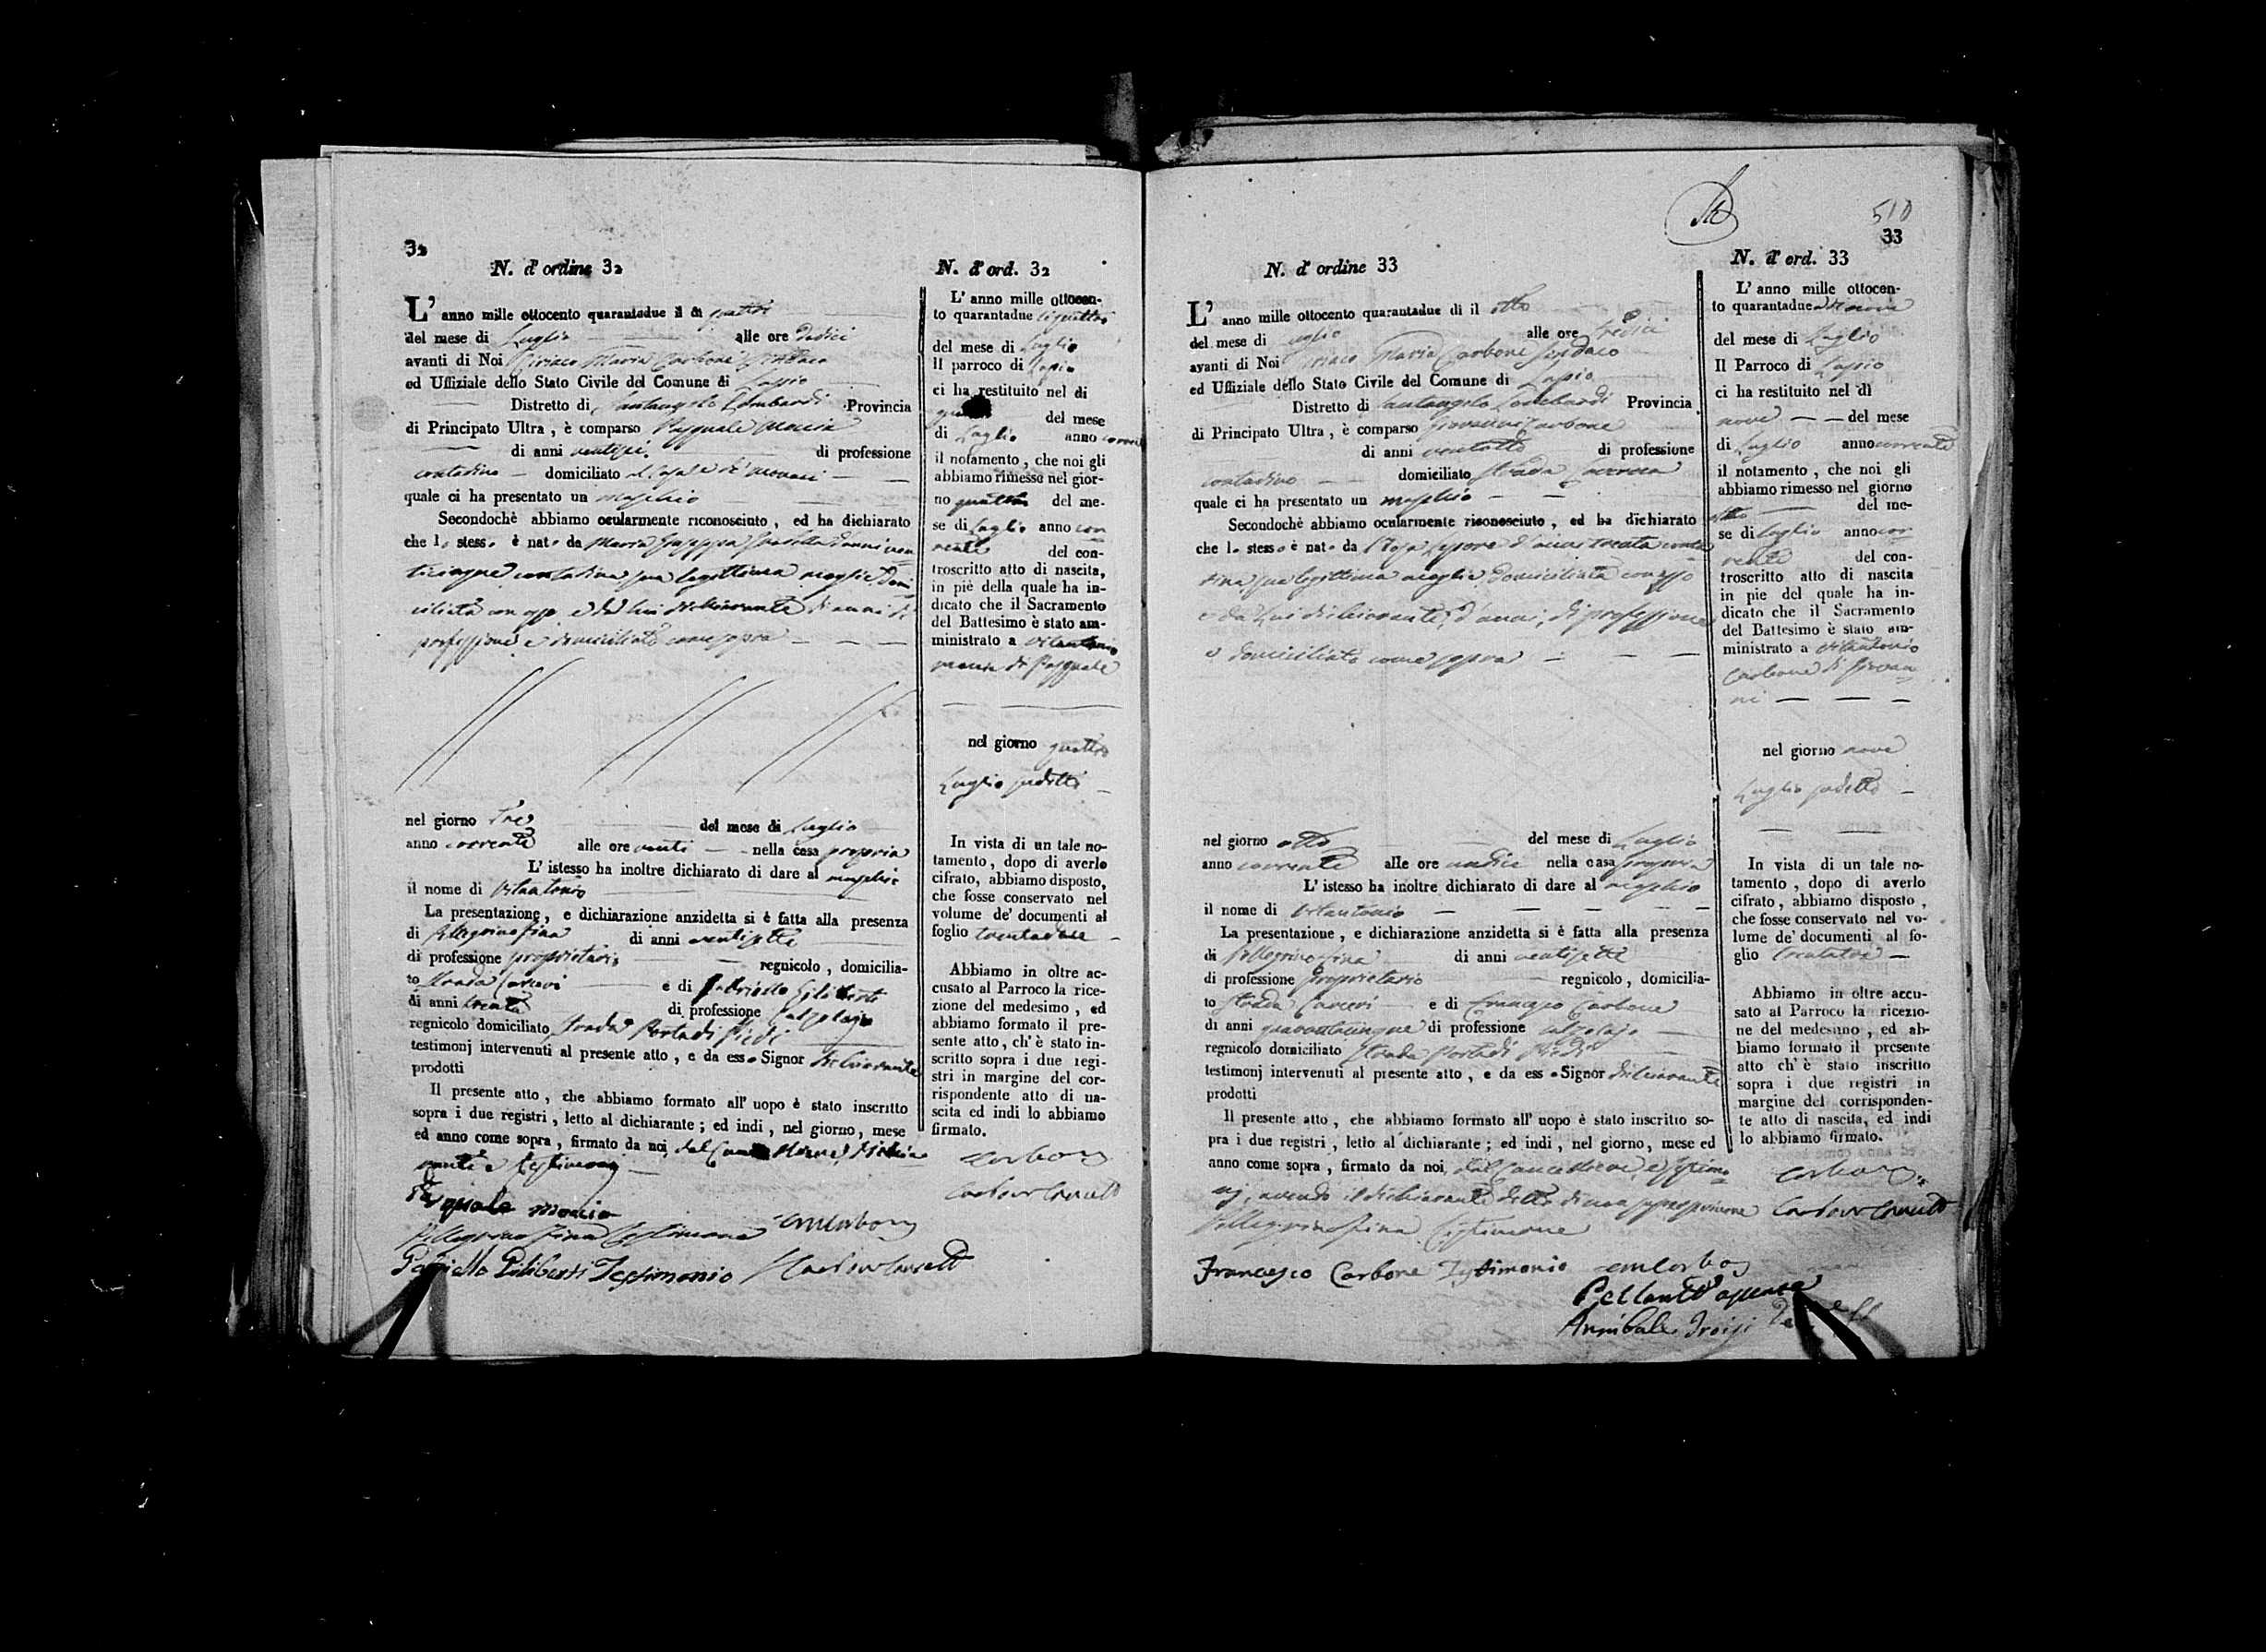 32
N. d' ordine 32
L' anno mille ottocento quarantadue il dì quattro
del mese di Luglio alle ore dodici
avanti di Noi Ciriaco Maria Carbone Sindaco
ed Uffiziale dello Stato Civile del Comune di Lapio
Distretto di Santangelo Lombardi Provincia
di Principato Ultra, è comparso Pasquale
di anni ventisei di professione
contadino domiciliato
quale ci ha presentato un maschio
Secondochè abbiamo ocularmente riconosciuto, ed ha dichiarato
che lo stesso è nato da Maria Giuseppa d'anni ven
ticinque contadina sua legittima moglie domi
ciliata con esso e da lui dichiarante di anni di
professione e domiciliato come sopra
nel giorno tre del mese di Luglio
anno corrente alle ore venti nella casa propria
L' istesso ha inoltre dichiarato di dare al maschio
il nome di Vitantonio
La presentazione, e dichiarazione anzidetta si è fatta alla presenza
di Pellegrino Fina di anni ventisette
di professione proprietario regnicolo, domicilia-
to Strada Carceri e di Gabriello Giliberti
di anni trenta di professione calzolajo
regnicolo domiciliato Strada Porta di Piedi
testimonj intervenuti al presente atto, e da esso Signor dichiarante
prodotti
Il presente atto, che abbiamo formato all' uopo è stato inscritto
sopra i due registri, letto al dichiarante; ed indi, nel giorno, mese
ed anno come sopra, firmato da noi, dal Cancelliere, dichia
rante e testimonj
Pasquale
Pellegrino Fina Testimone
Gabriello Giliberti Testimonio
N. d' ord. 32
L' anno mille ottocen-
to quarantadue li quattro
del mese di Luglio
Il parroco di Lapio
ci ha restituito nel dì
del mese
di Luglio anno corrente
il notamento, che noi gli
abbiamo rimesso nel gior-
no quattro del me-
se di Luglio anno cor
rente del con-
troscritto atto di nascita,
in piè della quale ha in-
dicato che il Sacramento
del Battesimo è stato am-
ministrato a Vitantonio
di Pasquale
nel giorno quattro
Luglio sudetto
In vista di un tale no-
tamento, dopo di averlo
cifrato, abbiamo disposto,
che fosse conservato nel
volume de' documenti al
foglio trentadue
Abbiamo in oltre ac-
cusato al Parroco la rice-
zione del medesimo, ed
abbiamo formato il pre-
sente atto, ch' è stato in-
scritto sopra i due regi-
stri in margine del cor-
rispondente atto di na-
scita ed indi lo abbiamo
firmato.
510
33
N. d' ordine 33
L' anno mille ottocento quarantadue dì il otto
del mese di Luglio alle ore tredici
avanti di Noi Ciriaco Maria Carbone Sindaco
ed Uffiziale dello Stato Civile del Comune di Lapio
Distretto di Santangelo Lombardi Provincia
di Principato Ultra, è comparso Giovanni Carbone
di anni ventotto di professione
contadino domiciliato Strada
quale ci ha presentato un maschio
Secondochè abbiamo ocularmente riconosciuto, ed ha dichiarato
che lo stesso è nato da Rosa Lepore d'anni trenta conta
dina sua legittima moglie domiciliata con esso
e da lui dichiarante, d'anni, di professione
e domiciliato come sopra
nel giorno otto del mese di Luglio
anno corrente alle ore undici nella casa propria
L' istesso ha inoltre dichiarato di dare al maschio
il nome di Vitantonio
La presentazione, e dichiarazione anzidetta si è fatta alla presenza
di Pellegrino Fina di anni ventisette
di professione proprietario regnicolo, domicilia-
to Strada Carceri e di Francesco Carbone
di anni quarantacinque di professione calzolajo
regnicolo domiciliato Strada Porta di Piedi
testimonj intervenuti al presente atto, e da esso Signor dichiarante
prodotti
Il presente atto, che abbiamo formato all' uopo è stato inscritto so-
pra i due registri, letto al dichiarante; ed indi, nel giorno, mese ed
anno come sopra, firmato da noi, dal Cancelliere, e testimo
nj, avendo il dichiarante detto di non sapere scrivere
Pellegrino Fina Testimone
Francesco Carbone Testimonio
Annibale Troisi
N. d' ord. 33
L' anno mille ottocen-
to quarantadue nove
del mese di Luglio
Il Parroco di Lapio
ci ha restituito nel dì
nove del mese
di Luglio anno corrente
il notamento, che noi gli
abbiamo rimesso nel giorno
otto del me-
se di Luglio anno cor
rente del con-
troscritto atto di nascita
in pie del quale ha in-
dicato che il Sacramento
del Battesimo è stato am-
ministrato a Vitantonio
Carbone di Giovan
ni
nel giorno nove
Luglio sudetto
In vista di un tale no-
tamento, dopo di averlo
cifrato, abbiamo disposto,
che fosse conservato nel vo-
lume de' documenti al fo-
glio trentatre
Abbiamo in oltre accu-
sato al Parroco la ricezio-
ne del medesimo, ed ab-
biamo formato il presente
atto ch' è stato inscritto
sopra i due registri in
margine del corrisponden-
te atto di nascita, ed indi
lo abbiamo firmato.